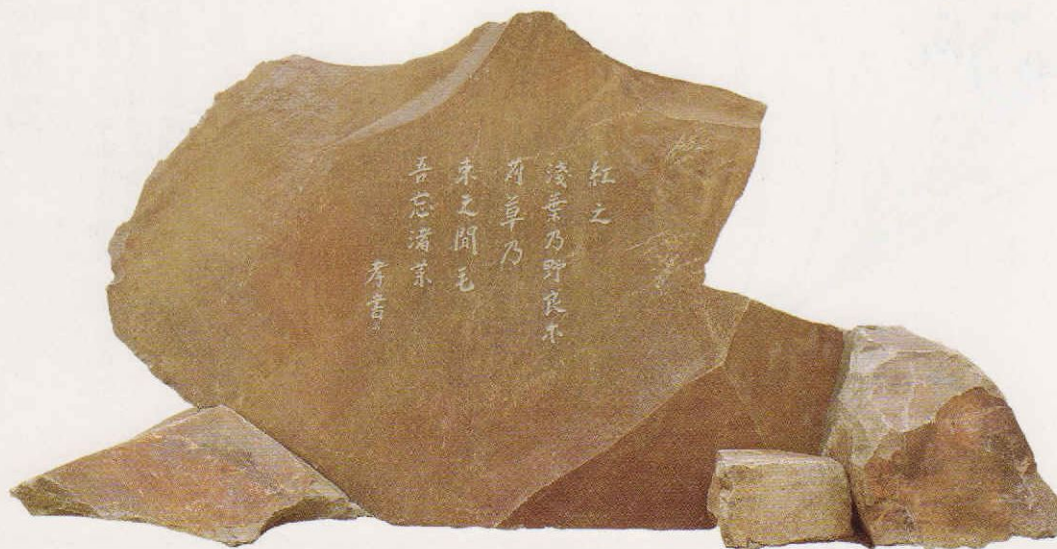 紅之
淺葉乃野良尓
苅草乃
束之間毛
吾忘渚菜
孝書